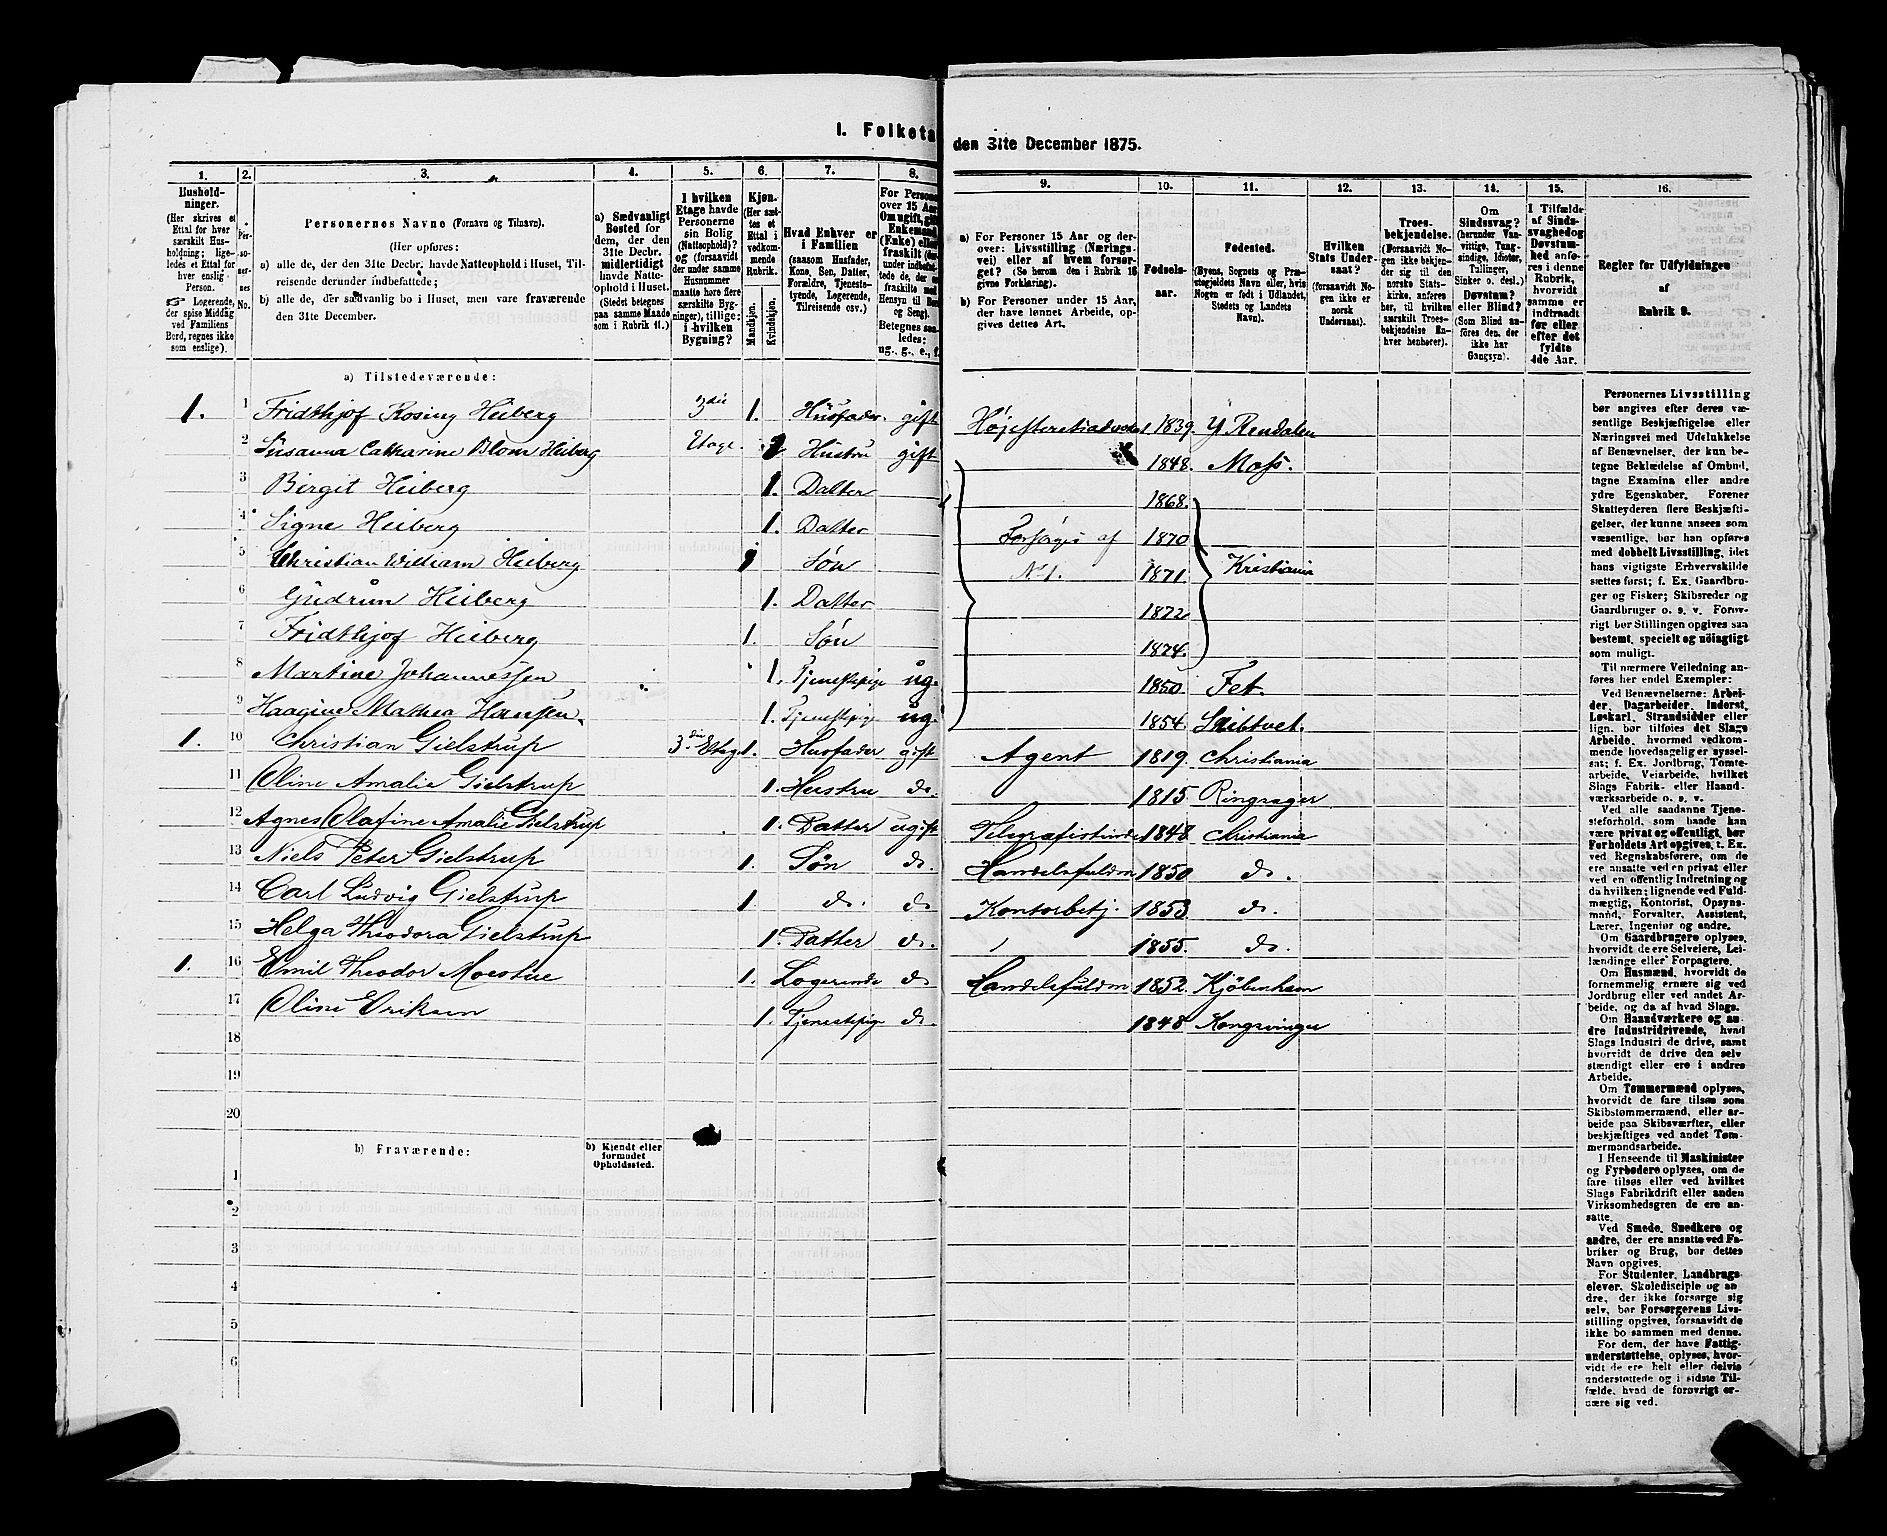 I. Folketæ
den 31te December 1875.
1. 2. 3. 4. 5. 6. 7. 8. 9. 10. 11. 12. 13. 14. 15. 16.
Hushold-
ninger.
(Her skrives et
Ettal for hver
særskilt Hus-
holdning; lige-
ledes et Ettal for
hver enslig
Person.
☞ Logerende,
der spise Middag
ved Familiens
Bord, regnes ikke
som enslige).
Per-
soner-
nes
No.
Personernes Navne (Fornavn og Tilnavn).
(Her opføres:
a) alle de, der den 31te Decbr. havde Natteophold i Huset, Til-
reisende derunder indbefattede;
b) alle de, der sædvanlig bo i Huset, men vare fraværende
den 31te December.
a) Sædvanligt
Bosted for
dem, der den
31te Decbr.
midlertidigt
havde Natte-
ophold i Huset.
(Stedet betegnes
paa samme Maade
som i Rubrik 11.)
I hvilken
Etage havde
Personerne
sin Bolig
(Natteophold)?
og (forsaavidt
der under samme
Husnummer
maatte høre flere
særskilte Byg-
ninger), tillige:
i hvilken
Bygning?
Kjøn.
(Her sæt-
tes et
Ettal i
vedkom-
mende
Rubrik.
Mandkjøn.
Kvindekjøn.
Hvad Enhver er
i Familien
(saasom Husfader,
Kone, Søn, Datter,
Forældre, Tjenestetyende, Logerende,
Tilreisende osv.)
For Persone
over 15 Aar
Om ugift, gift
Enkemand
(Enke) eller
fraskilt
Betegnes saa-
ledes:
ug., g., e., f.
a) For Personer 15 Aar og der-
over: Livsstilling (Nærings-
vei) eller af hvem forsør-
get? (Se herom den i Rubrik 16
givne Forklaring).
b) For Personer under 15 Aar,
der have lønnet Arbeide, op-
gives dettes Art.
Fødsels-
aar.
Fødested.
(Byens, Sognets og Præ-
stegjeldets Navn eller, hvis
Nogen er født i Udlandet,
Stedets og Landets
Navn).
Hvilken
Stats Under-
saat?
(forsaavidt No-
gen ikke er
norsk
Undersaat).
Troes-
bekjendelse.
(Forsaavidt No-
gen ikke bekjen-
der sig til den
norske Stats-
kirke, anføres
her, til hvilken
særskilt Troes-
bekjendelse En-
hver henhører).
Om
Sindssvag?
(herunder Van-
vittige, Tung-
sindige, Idioter,
Tullinger,
Sinker o. desl.)
Døvstum?
eller Blind?
(Som Blind an-
føres den, der
ikke har
Gangsyn).
I Tilfælde
af Sinds-
svaghed og
Døvstum-
hed anfø-
res i denne
Rubrik,
hvorvidt
samme er
indtraadt
før eller
efter det
fyldte
4de Aar.
Regler for Udfyldningen
af
Rubrik 9.
a) Tilstedeværende:
1. 1 Fridthjof Rosing Heiberg 3die 1. Husfader gift Høiesteretsadvokat 1839. Y Rendalen
2 Susanna Catharine Blom Heiberg Etage. 1 Hustru gift 1848. Moss.
3 Birgit Heiberg 1. Datter 1868.
4 Signe Heiberg 1. Datter Forsørges af 1870
5 Christian William Heiberg 1 Søn No 1. 1871. Kristiania
6 Gudrun Heiberg 1. Datter 1872
7 Fridthjof Heiberg 1. Søn 1874.
8 Martine Johannessen 1. Tjenestepige ug. 1850. Fet.
9 Haagine Mathea Hansen. 1. Tjenestepige ug. 1854. Skibtvet.
1. 10 Christian Gielstrup 3die Etage 1. Husfader gift Agent 1819. Christiania
11 Oline Amalie Gielstrup 1. Hustru do. 1815. Ringsager
12 Agnes Olafine Amalie Gielstrup 1. Datter ugift Telegrafistinde 1848. Christiania
13 Niels Peter Gielstrup 1. Søn do Handelsfuldm 1850 do.
14 Carl Ludvig Gielstrup 1 do. do Kontorbetj. 1853 do.
15 Helga Theodora Gielstrup 1. Datter do. 1855. do.
1. 16 Emil Theodor Moestue 1. Logerende do Handelsfuldm. 1852. Kjöbenhavn
17 Oline Eriksen 1. Tjenestepige do. 1848 Kongsvinger
18
19
20
b) Fraværende:
b) Kjendt eller
formodet
Opholdssted.
1
2
3
4
5
6
Personernes Livsstilling
bør angives efter deres væ-
sentlige Beskjæftigelse eller
Næringsvei med Udelukkelse
af Benævnelser, der kun be-
tegne Beklædelse af Ombud,
tagne Examina eller andre
ydre Egenskaber. Forener
Skatteyderen flere Beskjæfti-
gelser, der kunne ansees som
væsentlige, bør han opføres
med dobbelt Livsstilling, idet
hans vigtigste Erhvervskilde
sættes først; f. Ex. Gaardbru-
ger og Fisker; Skibsreder og
Gaardbruger o. s. v. Forøv-
rigt bør Stillingen opgives saa
bestemt, specielt og nöiagtigt
som muligt.
Til nærmere Veiledning an-
føres her endel Exempler:
Ved Benævnelserne: Arbei-
der, Dagarbeider, Inderst,
Løskarl, Strandsidder eller
lign. bør tilføies det Slags
Arbeide, hvormed vedkom-
mende hovedsagelig er syssel-
sat; f. Ex. Jordbrug, Tomte-
arbeide, Veiarbeide, hvilket
Slags Fabrik- eller Haand-
værksarbeide o. s. v.
Ved alle saadanne Tjene-
steforhold, som baade kan
være privat og offentligt, bør
Forholdets Art opgives, t. Ex.
ved Regnskabsførere, om de
ere ansatte ved en privat eller
ved en offentlig Indretning og
da hvilken; lignende ved Fuld-
mægtig, Kontorist, Opsyns-
mand, Forvalter, Assistent,
Lærer, Ingeniør og andre.
Om Gaardbrugere oplyses,
hvorvidt de ere Selveiere, Lei-
lændinge eller Forpagtere.
Om Husmænd, hvorvidt de
fornemmelig ernære sig ved
Jordbrug eller ved andet Ar-
beide, og da af hvad Slags.
Om Haandværkere og an-
dre Industridrivende, hvad
Slags Industri de drive, samt
hvorvidt de drive den selv
stændigt eller ere i andres
Arbeide.
Om Tømmermænd oplyses,
hvorvidt de fare tilsøs som
Skibstømmermænd, eller ar-
beide paa Skibsværfter, eller
beskjæftiges ved andet Tøm-
mermandsarbeide.
I Henseende til Maskinister
og Fyrbødere oplyses, om de
fare tilsøs eller ved hvilket
Slags Fabrikdrift eller anden
Virksomhedsgren de ere an-
satte.
Ved Smede, Snedkere og
andre, der ere ansatte ved Fa-
briker og Brug, bør dettes
Navn opgives.
For Studenter, Landbrugs-
elever, Skoledisciple og an-
dre, der ikke forsørge sig
selv, bør Forsørgerens Livs-
stilling opgives, forsaavidt de
ikke bo sammen med denne.
For dem, der have Fattig-
understøttelse, oplyses, hvor-
vidt de ere helt eller delvis
understøttede og i sidste Til-
fælde, hvad de forøvrigt er-
nære sig ved.